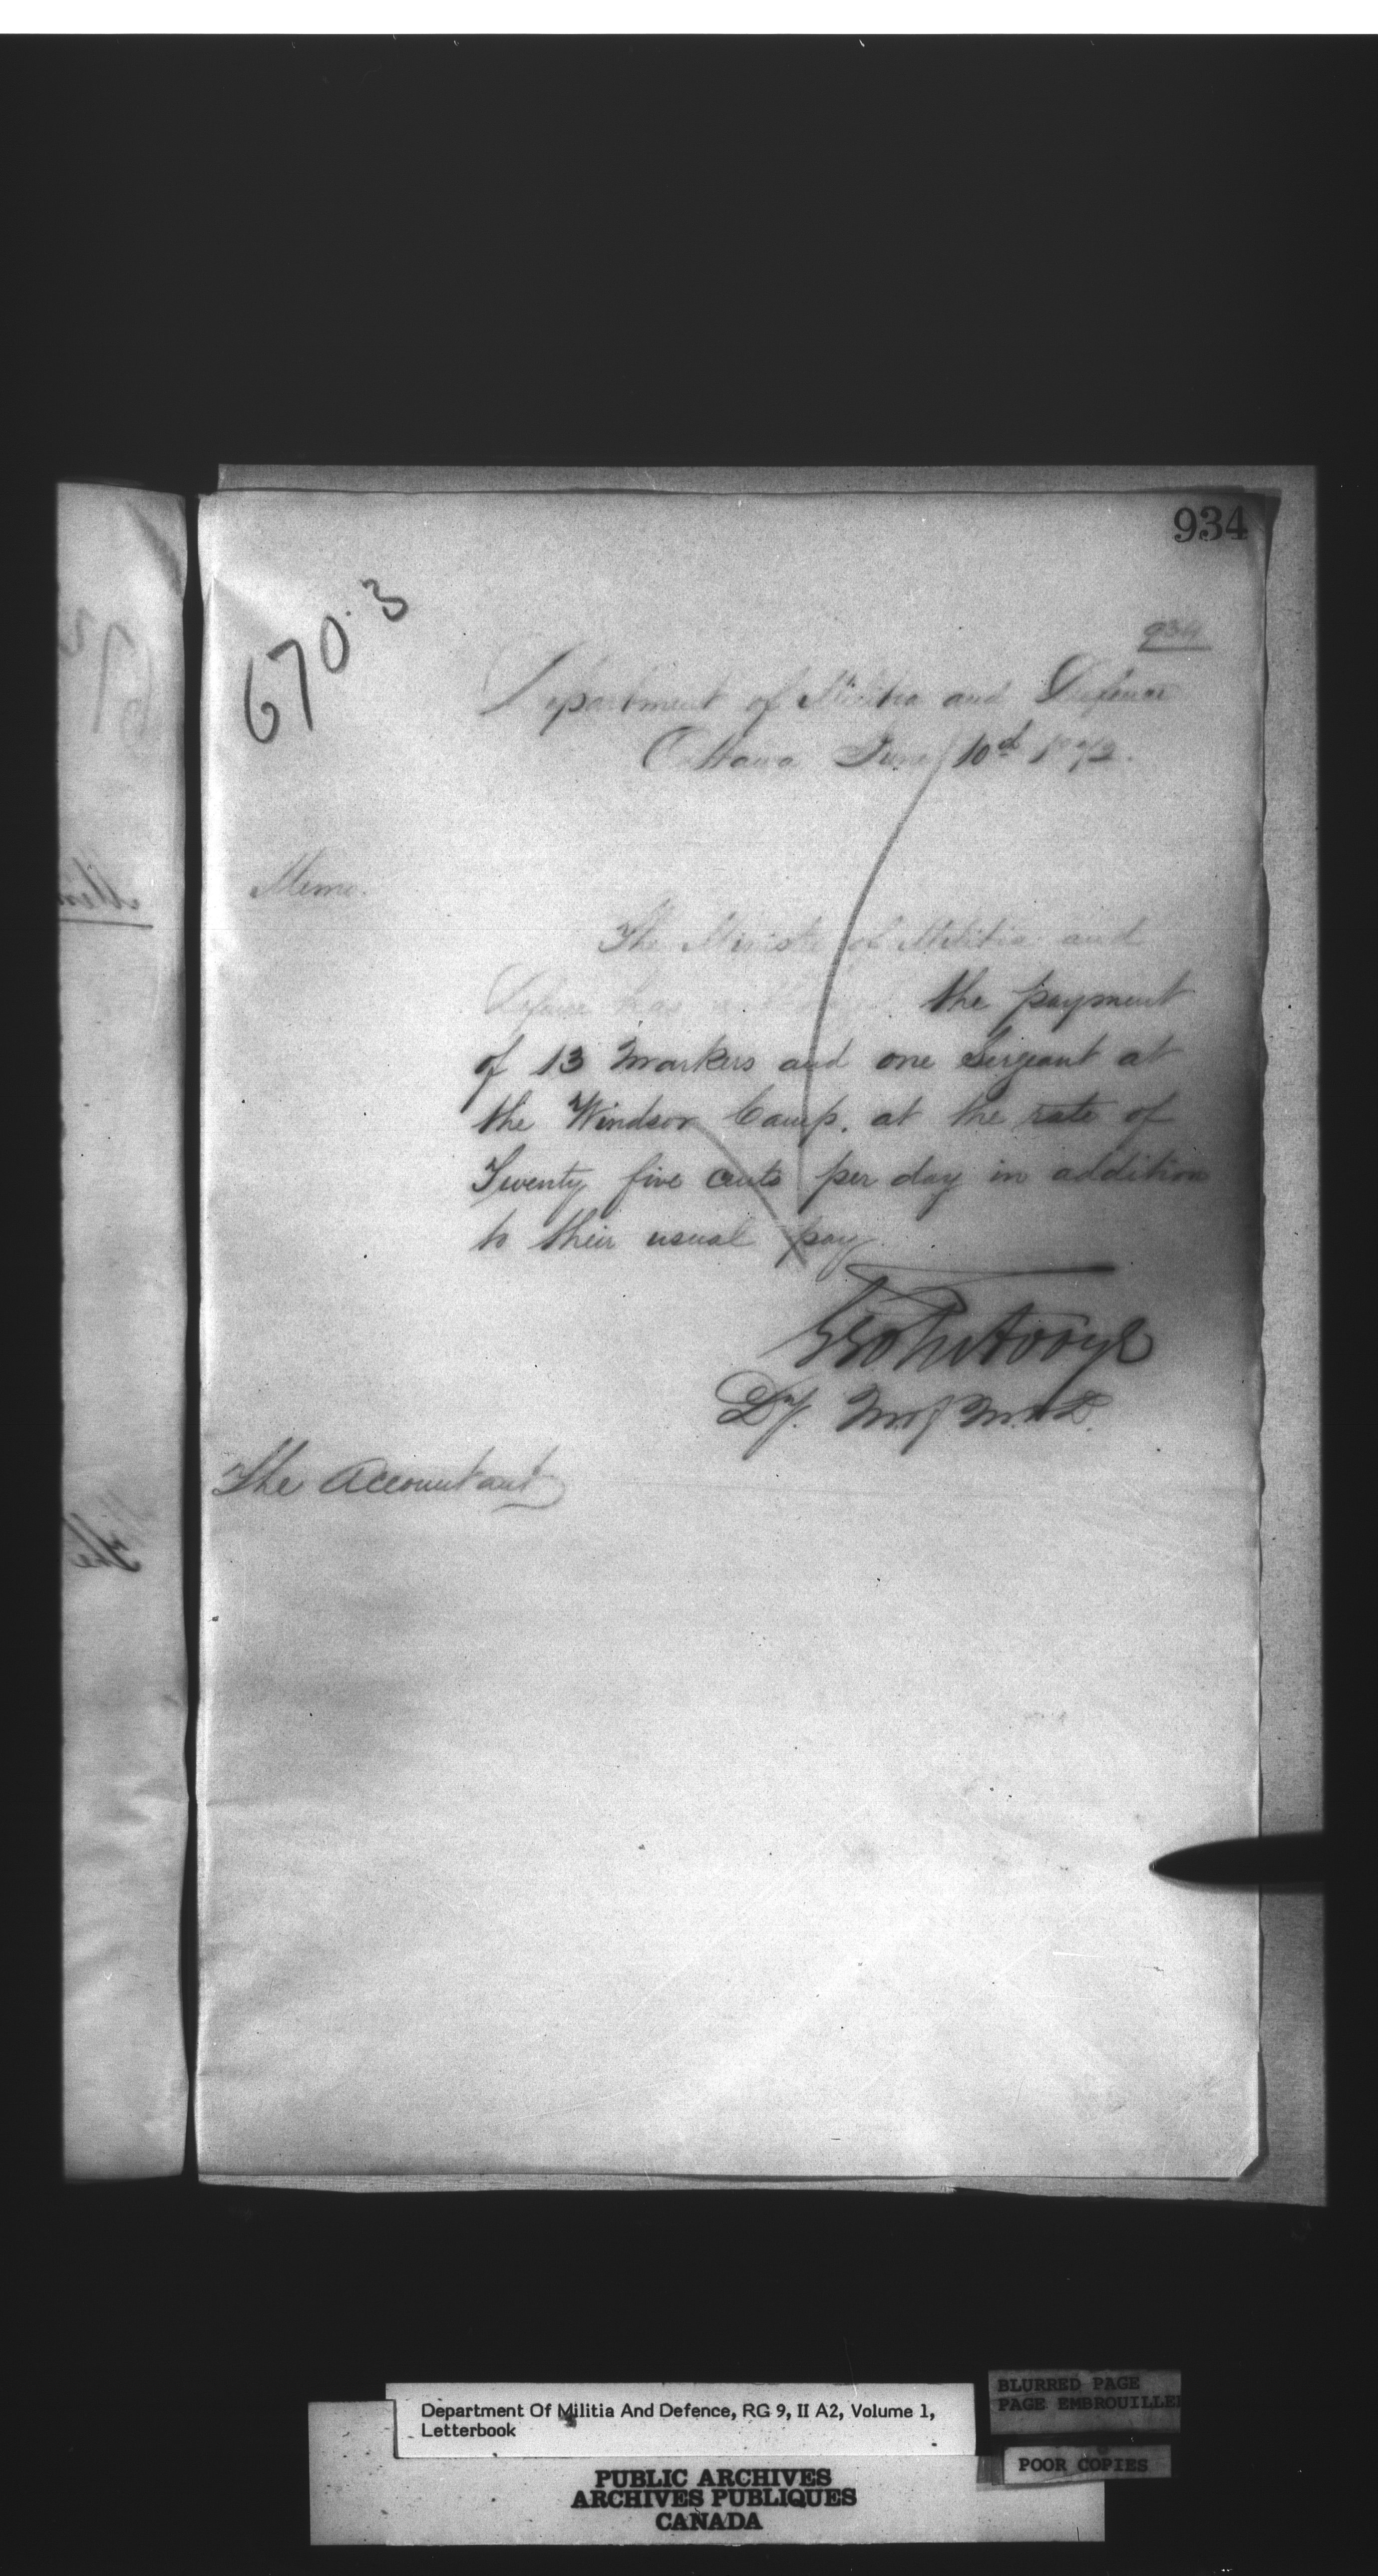 934
670.3
934
Department of Militia and Defence
Ottawa June 10th 1872.
Memo.
The Minister of Militia and
Defence has the payment
of 13 Markers and one Sergeant at
the Windsor Camp. at the rate of
Twenty five cents per day in addition
to their usual pay.
Dy. M. of M. & D.
The Accountant
Mem
The
Department Of Militia And Defence, RG 9, II A2, Volume 1,
Letterbook
BLURRED PAGE
PAGE EMBROUILLEE
POOR COPIES
PUBLIC ARCHIVES
ARCHIVES PUBLIQUES
CANADA